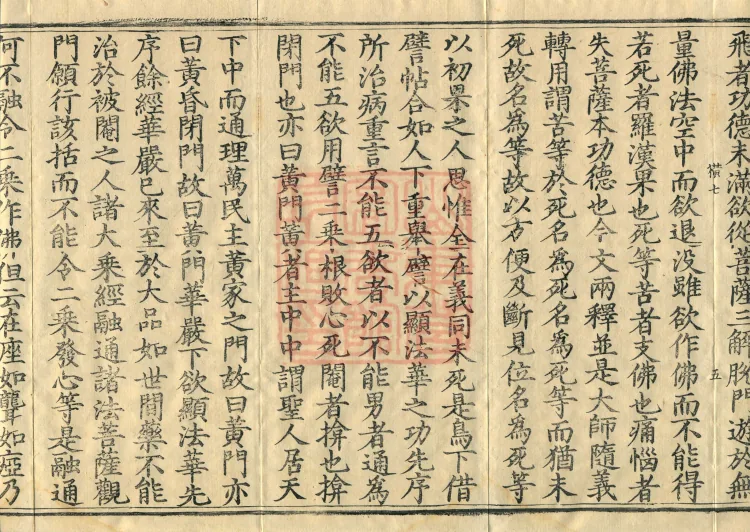 飛者功德未滿欲從菩薩三解脫門遊於無
量佛法空中而欲退没雖欲作佛而不能得
若死者羅漢果也死等苦者支佛也痛惱者
失菩薩本功德也今文兩釋並是大師隨義
轉用謂苦等於死名為死名為死等而猶未
死故名為等故以方便及斷見位名為死等
橫七
五
以初果之人思惟全在義同未死是鳥下借
譬帖合如人下重舉譬以顯法華之功先序
所治病重言不能五欲者以不能男者通為
不能五欲用譬二乘根敗心死閹者揜也揜
閉門也亦曰黄門黄者主中中謂聖人居天
下中而通理萬民主黄家之門故曰黄門亦
曰黄昏閉門故曰黄門華嚴下欲顯法華先
序餘經華嚴已來至於大品如世間藥不能
治於被閹之人諸大乘經融通諸法菩薩觀
門願行該括而不能令二乘發心等是融通
何不融令二乘作佛但云在座如聾如瘂乃